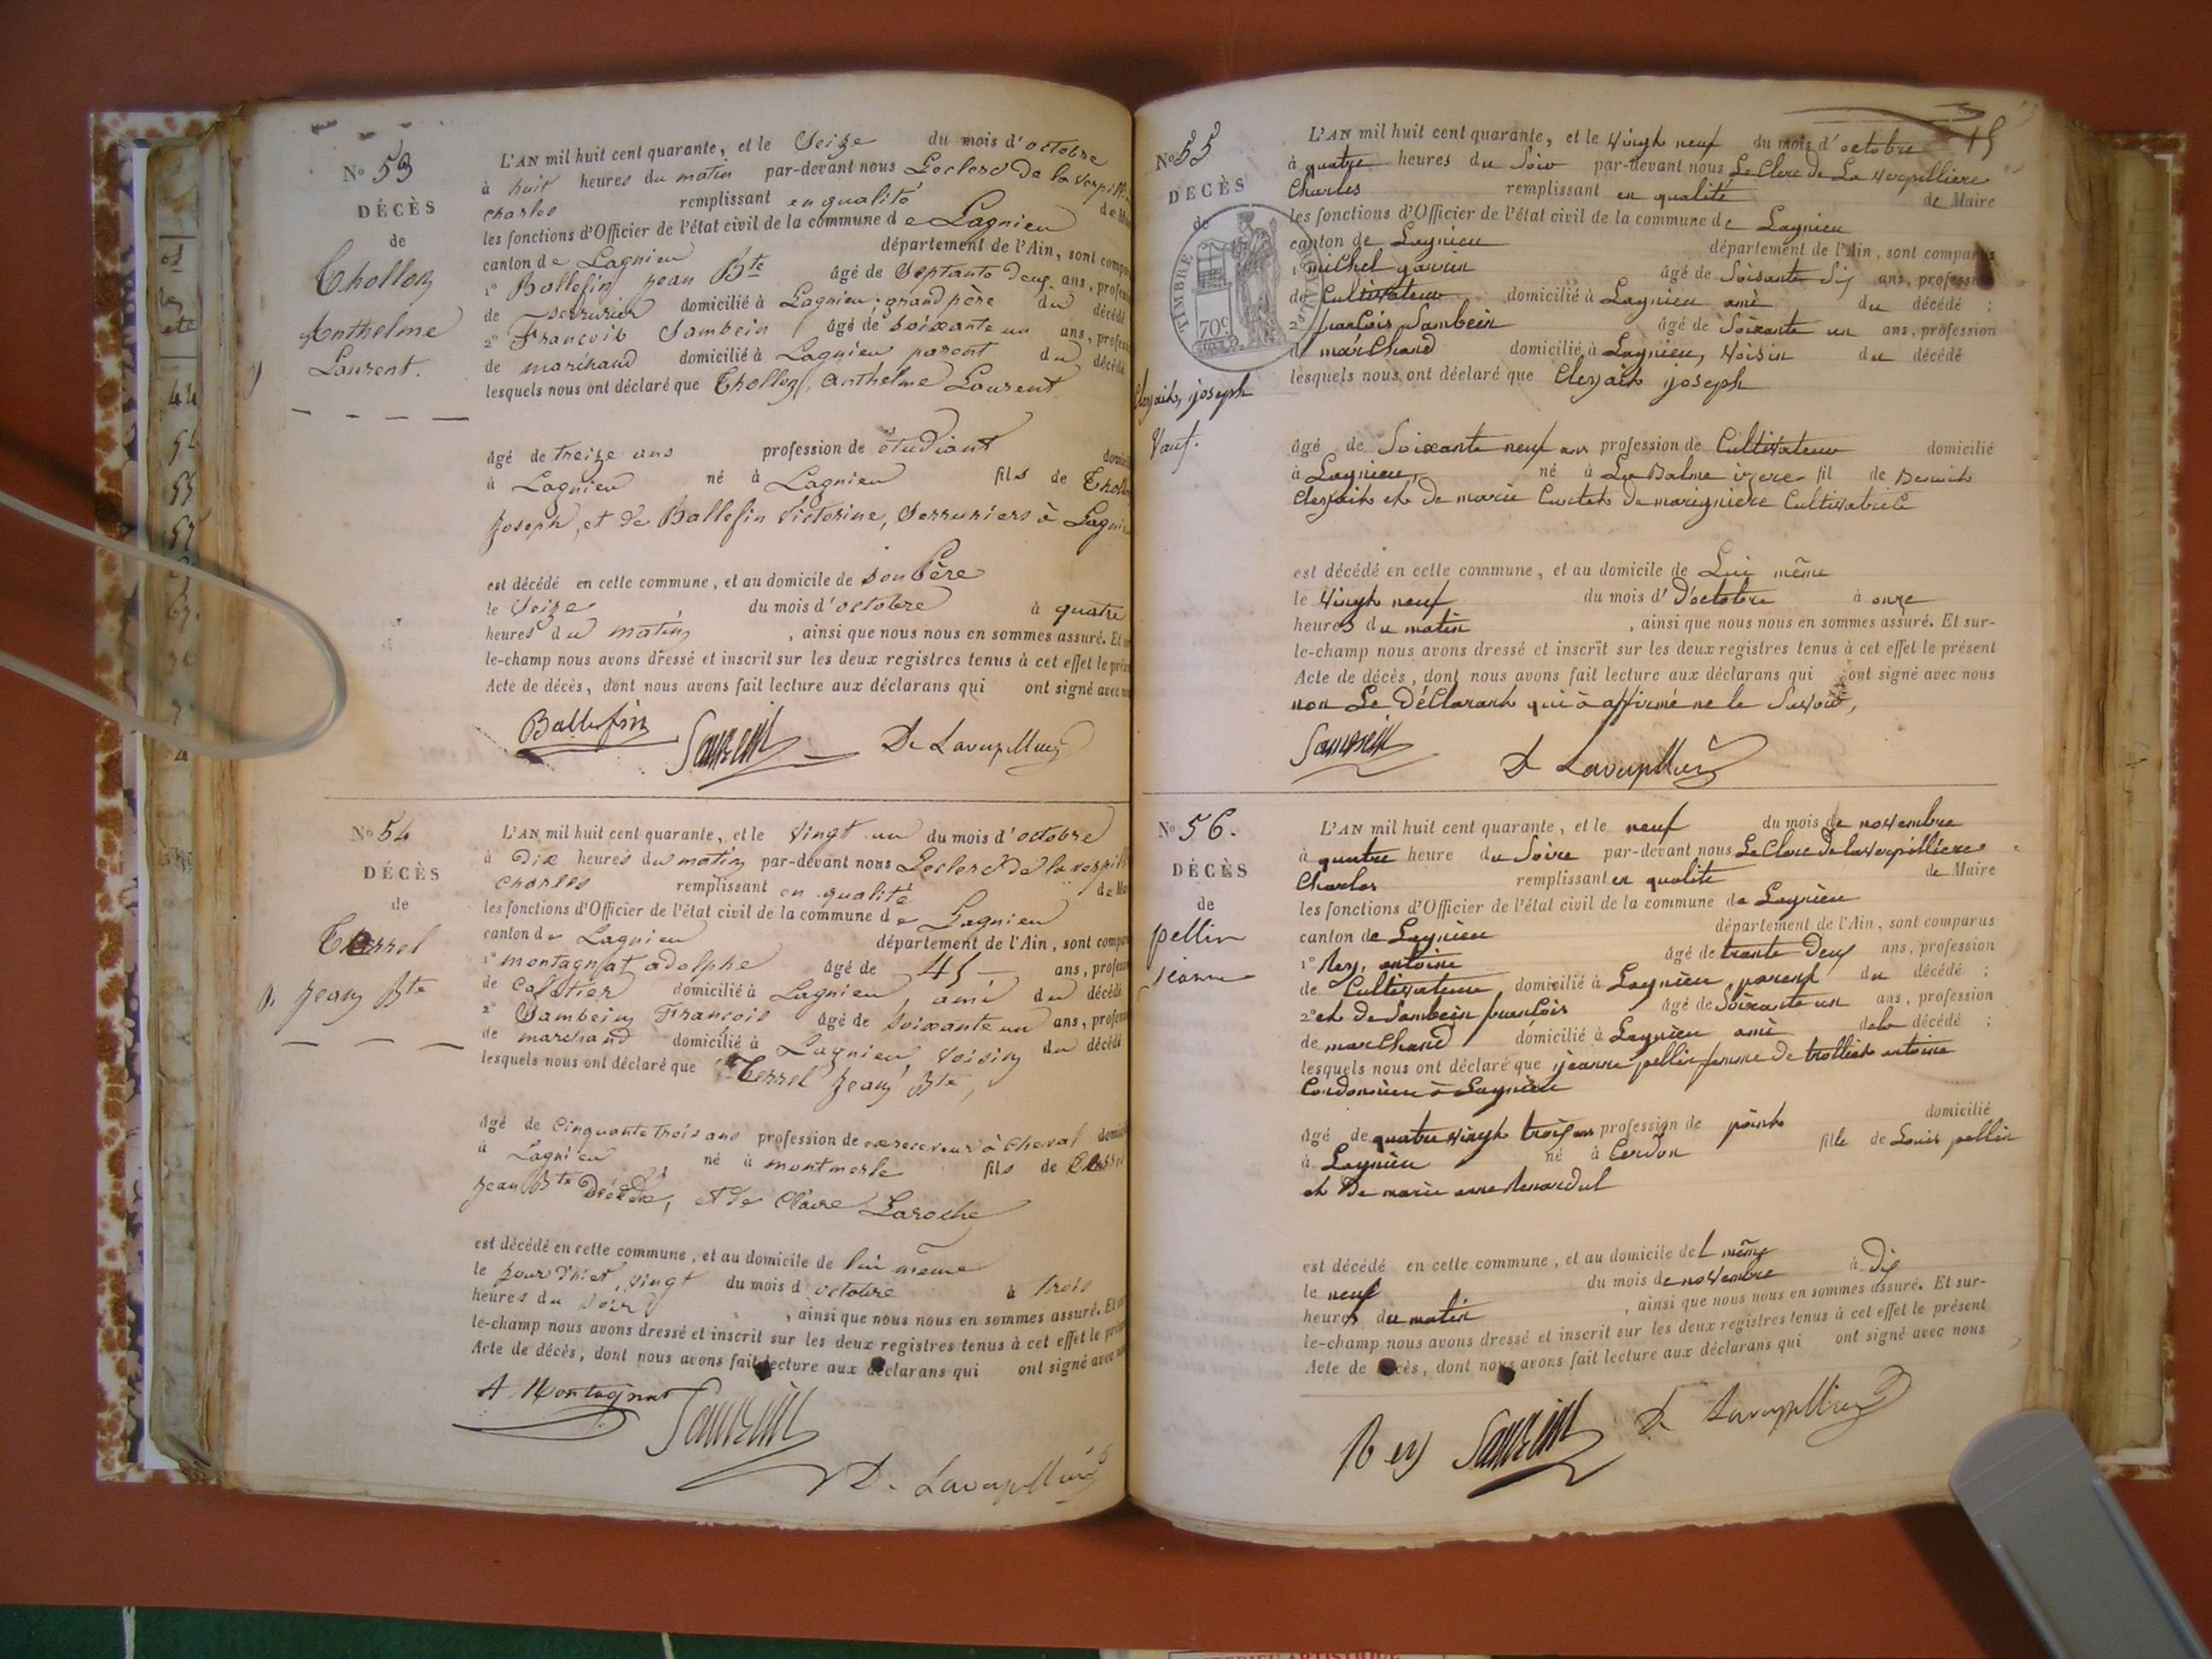 No 53
DÉCÈS
de
Thollon
Anthelme
Laurent.
L'AN mil huit cent quarante, et le Seize du mois d'octobre
à huit heures du matin par-devant nous Leclerc De la verpill
charles remplissant en qualité de Ma
les fonctions d'Officier de l'état civil de la commune de Lagnieu
canton de Lagnieu département de l'Ain, sont comp
1° Ballefin jean Bte âgé de Septante Deux ans, profes
de Serrurier domicilié à Lagnieu, grand père du décédé
2° Francois Sambein âgé de soixante un ans, profes
de marchand domicilié à Lagnieu parent du décédé
lesquels nous ont déclaré que Thollon, anthelme Laurent
âgé de treize ans profession de étudiant domici
à Lagnieu né à Lagnieu fils de Thollon
Joseph, et de Ballefin Victorine, Serruriers à Lagnieu
est décédé en cette commune, et au domicile de son Père
le Seize du mois d'octobre à quatre
heures du matin, ainsi que nous nous en sommes assuré. Et
le-champ nous avons dressé et inscrit sur les deux registres tenus à cet effet le prés
Acte de décès, dont nous avons fait lecture aux déclarans qui ont signé avec
Ballefin Sambein De Laverpilliere
No 54
DÉCÈS
de
Terrel
Jean Bte
L'AN mil huit cent quarante, et le vingt un du mois d'octobre
à Dix heures du matin par-devant nous Leclerc De la verpill
charles remplissant en qualité de Ma
les fonctions d'Officier de l'état civil de la commune de Lagnieu
canton de Lagnieu département de l'Ain, sont comp
1° montagnat adolphe âgé de 45 ans, profes
de cafetier domicilié à Lagnieu, ami du décédé
2° Sambein Francois âgé de soixante un ans, profes
de marchand domicilié à Lagnieu, voisin du décédé
lesquels nous ont déclaré que Terrel Jean Bte,
âgé de Cinquante trois ans profession de receveur à cheval domici
à Lagnieu né à montmerle fils de Terrel
Jean Bte Décédé, et de Claire Laroche
est décédé en cette commune, et au domicile de lui même
le jour d'hier, vingt du mois d octobre à trois
heures du soir, ainsi que nous nous en sommes assuré. Et
le-champ nous avons dressé et inscrit sur les deux registres tenus à cet effet le pré
Acte de décès, dont nous avons fait lecture aux déclarans qui ont signé avec
A. Montagnat Sambein
D. Laverpilliere
15
No 55
DÉCÈS
de
TIMBRE ROYAL
70c
Clerjait, joseph
Vauf.
L'AN mil huit cent quarante, et le Vingt neuf du mois d'octobre
à quatre heures du Soir par-devant nous Le Clerc de La Verpilliere
Charles remplissant en qualité de Maire
les fonctions d'Officier de l'état civil de la commune de Lagnieu
canton de Lagnieu département de l'Ain, sont comparus
1° michel gavin âgé de Soisante Six ans, profession
de Cultivateur domicilié à Lagnieu ami du décédé ;
2° francois Sambein âgé de Soixante un ans, profession
de marchand domicilié à Lagnieu, Voisin du décédé
lesquels nous ont déclaré que Clerjait joseph
âgé de Soixante neuf ans profession de Cultivateur domicilié
à Lagnieu, né à La Balme izere fil de Benoit
Clerjait et de marie Curtet de marigniere Cultivatrice
est décédé en cette commune, et au domicile de Lui même
le Vingt neuf du mois d' d'octobre à onze
heures du matin, ainsi que nous nous en sommes assuré. Et sur-
le-champ nous avons dressé et inscrit sur les deux registres tenus à cet effet le présent
Acte de décès, dont nous avons fait lecture aux déclarans qui ont signé avec nous
non Le déclarant qui à affirmé ne le Savoir,
Sambein D Laverpilliere
No 56.
DÉCÈS
de
pellin
jeanne
L'AN mil huit cent quarante, et le neuf du mois de novembre
à quatre heure du Soire par-devant nous Le Clerc de la Verpilliere
Charles remplissant en qualité de Maire
les fonctions d'Officier de l'état civil de la commune de Lagnieu
canton de Lagnieu département de l'Ain, sont comparus
1° Rey, antoine âgé de trante Deux ans, profession
de Cultivateur domicilié à Lagnieu parent du décédé ;
2° et de Sambein francois âgé de Soixante un ans, profession
de marchand domicilié à Lagnieu ami dela décédé ;
lesquels nous ont déclaré que jeanne pellin femme de trolliet antoine
Cordonnier à Lagnieu
âgé de quatre vingt trois ans profession de point domicilié
à Lagnieu né à Cerdon fille de Louis pellin
et De marie anne
est décédé en cette commune, et au domicile de L même
le neuf du mois de novembre à Dix
heures du matin, ainsi que nous nous en sommes assuré. Et sur-
le-champ nous avons dressé et inscrit sur les deux registres tenus à cet effet le présent
Acte de décès, dont nous avons fait lecture aux déclarans qui ont signé avec nous
Rey Sambein D Laverpilliere